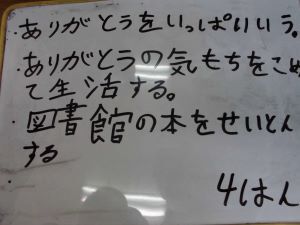 ・ありがとうをいっぱいいう。
・ありがとうの気もちをこめ
て生活する。
・図書館の本をせいとん
する
4はん